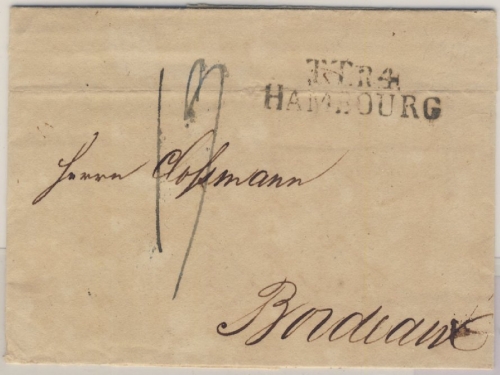 T.T.R.4.
HAMBOURG
19
Herrn Clossmann
Bordeaux